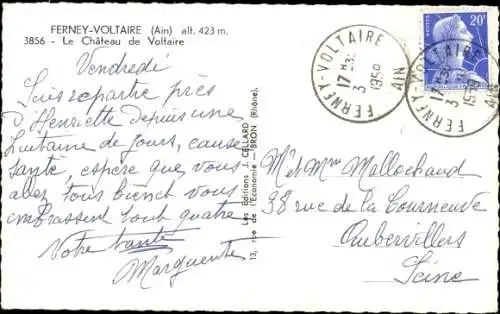 FERNEY-VOLTAIRE (Ain) alt. 423 m.
3856 - Le Château de Voltaire
Vendredi
Suis repartie près
d'Henriette depuis une
huitaine de jours, cause
santé, espère que vous
allez tous bien et vous
embrassent tous quatre
Votre tante
Marguerite
Les Editions J. CELLARD
13, rue de l'Economie - BRON (Rhône).
FERNEY-VOLTAIRE
17 3 1958
AIN
FERNEY-VOLTAIRE
17 3 1958
AIN
20f
M. et Mme Mallochaud
38 rue de la Courneuve
Aubervilliers
Seine